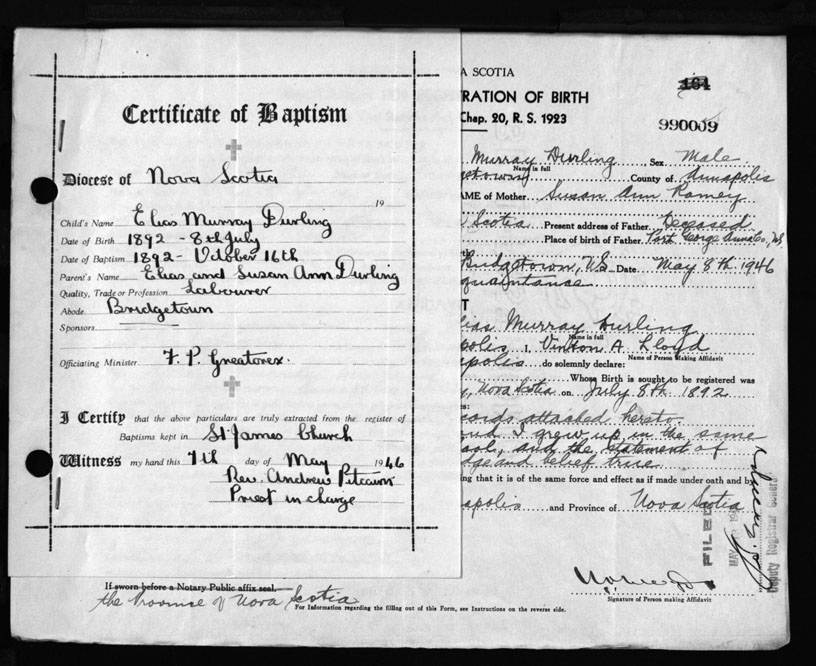 Certificate of Baptism
Diocese of Nova Scotia
19
Child's Name Elias Murray Durling
Date of Birth 1892 - 8th July
Date of Baptism 1892 - October 16th
Parent's Name Elias and Susan Ann Durling
Quality, Trade or Profession Labourer
Abode Bridgetown
Sponsors
Officiating Minister F. P. Greatorex.
I Certify that the above particulars are truly extracted from the register of
Baptisms kept in St James Church
Witness my hand this 7th day of May 1946
Rev. Andrew Pitcairn
Priest in charge
A SCOTIA
164
RATION OF BIRTH
Chap. 20, R. S. 1923
990009
Murray Durling Sex Male
Name in full
County of Annapolis
AME of Mother Susan Ann Ramey
Scotia Present address of Father Deceased
Place of birth of Father Port George Anna Co, N.S
Bridgetown, N.S. Date May 8th 1946
quaintance
T
lias Murray Durling
Name in full
polis I, Vinton A. Lloyd
Name of Person Making Affidavit
polis do solemnly declare:
Whose Birth is sought to be registered was
Nova Scotia on July 8th 1892
s:
cords attached hereto.
and I grew up in the same
and the statement of
and belief true.
ng that it is of the same force and effect as if made under oath and by
apolis and Province of Nova Scotia
FILED
MAY
Deputy Registrar General
Signature of Person making Affidavit
If sworn before a Notary Public affix seal.
the Province of Nova Scotia
For Information regarding the filling out of this Form, see Instructions on the reverse side.